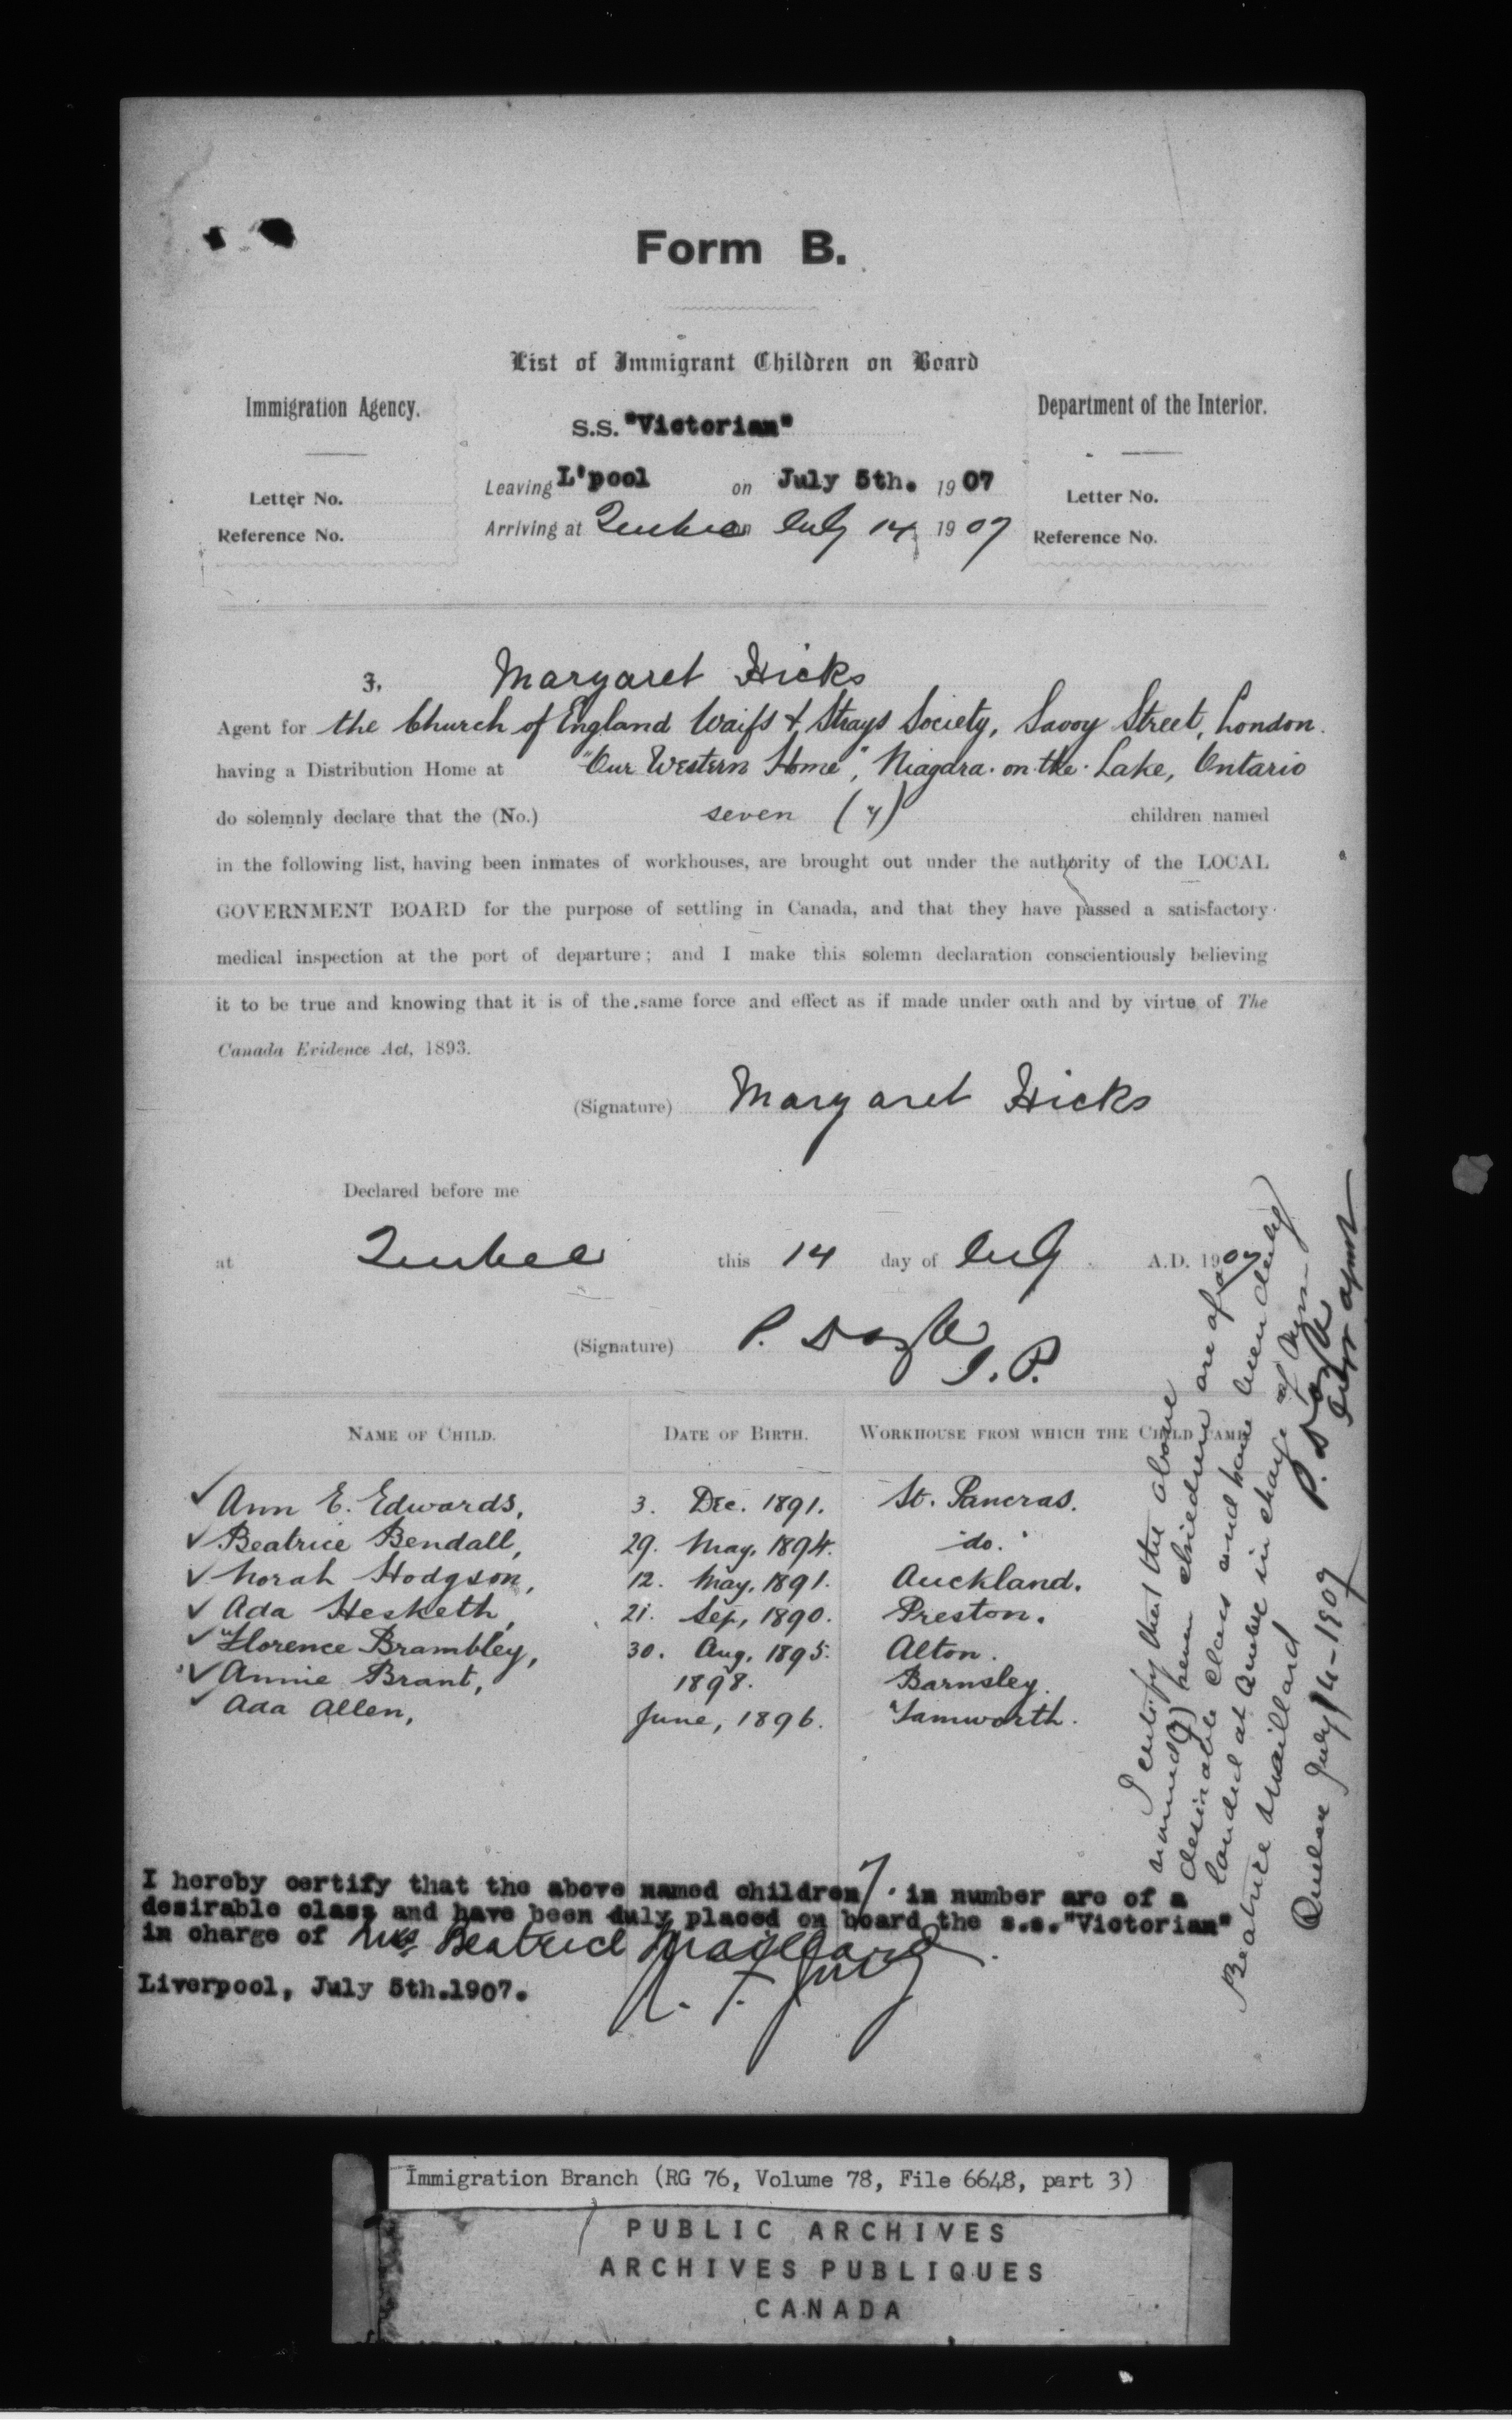 Form B.
List of Immigrant Children on Board
Immigration Agency.
Department of the Interior.
S.S. "Victorian"
Leaving L'pool on July 5th. 1907
Arriving at Quebec on July 14 1907
Letter No.
Reference No.
Letter No.
Reference No.
Margaret Hicks
Agent for the Church of England Waifs & Strays Society, Savoy Street, London.
having a Distribution Home at "Our Western Home", Niagara-on-the-Lake, Ontario
do solemnly declare that the (No.) seven (7) children named
in the following list, having been inmates of workhouses, are brought out under the authority of the LOCAL
GOVERNMENT BOARD for the purpose of settling in Canada, and that they have passed a satisfactory
medical inspection at the port of departure; and I make this solemn declaration conscientiously believing
it to be true and knowing that it is of the same force and effect as if made under oath and by virtue of The
Canada Evidence Act, 1893.
(Signature) Margaret Hicks
Declared before me
at Quebec this 14 day of July A.D. 1907
(Signature) P. Doyle
J.P.
NAME OF CHILD. DATE OF BIRTH. WORKHOUSE FROM WHICH THE CHILD CAME
✓ Ann E. Edwards, 3. Dec. 1891. St. Pancras.
✓ Beatrice Bendall, 29. May, 1894. "do."
✓ Norah Hodgson, 12. May, 1891. Auckland.
✓ Ada Hesketh, 21. Sep, 1890. Preston.
✓ Florence Brambley, 30. Aug, 1895. Alton.
✓ Annie Brant, 1898. Barnsley.
✓ Ada Allen, June, 1896. Tamworth.
I certify that the above
named (7) seven children are of a
desirable class and have been duly
landed at Quebec in charge of
Beatrice Maillard
P. Doyle
Quebec July 14-1907
I hereby certify that the above named children 7 in number are of a
desirable class and have been duly placed on board the s.s. "Victorian"
in charge of Miss Beatrice Maillard.
Liverpool, July 5th. 1907.
Immigration Branch (RG 76, Volume 78, File 6648, part 3)
PUBLIC ARCHIVES
ARCHIVES PUBLIQUES
CANADA